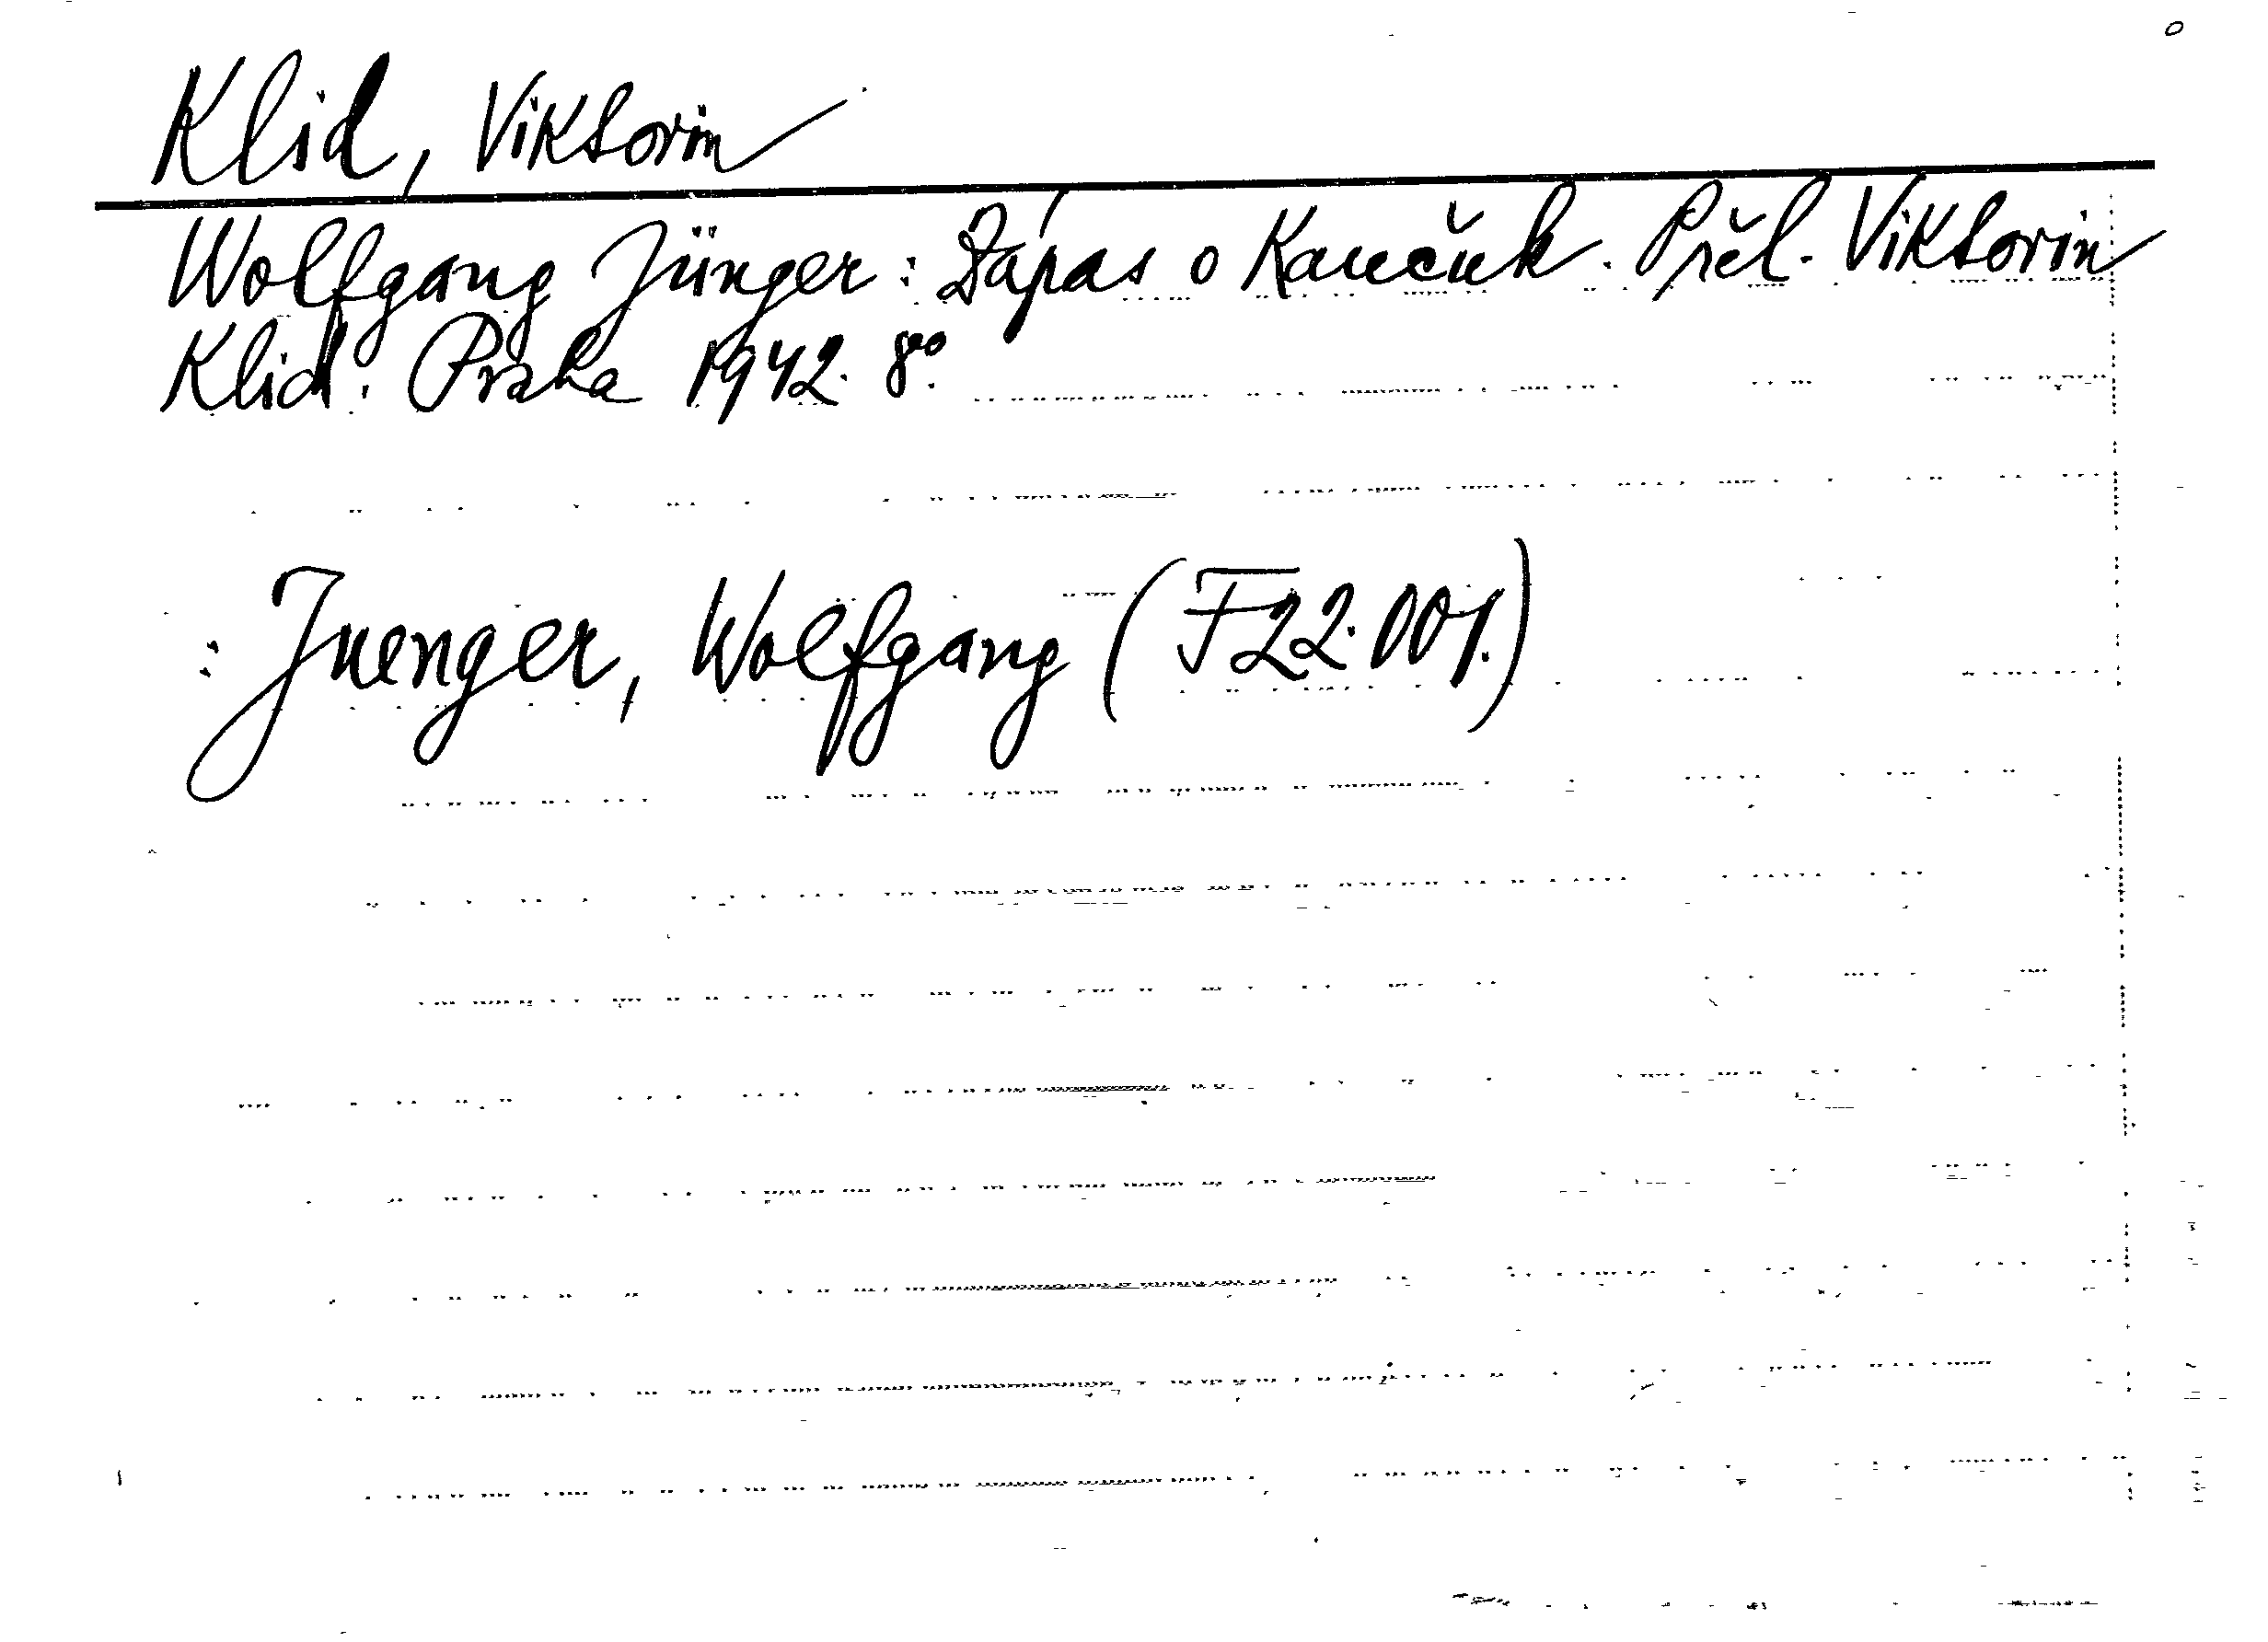 Klid, Viktorin
Wolfgang Jünger: Zápas o Kaučuk. Přel. Viktorin
Klid. Praha 1942. 8°.
: Juenger, Wolfgang (F22.001.)